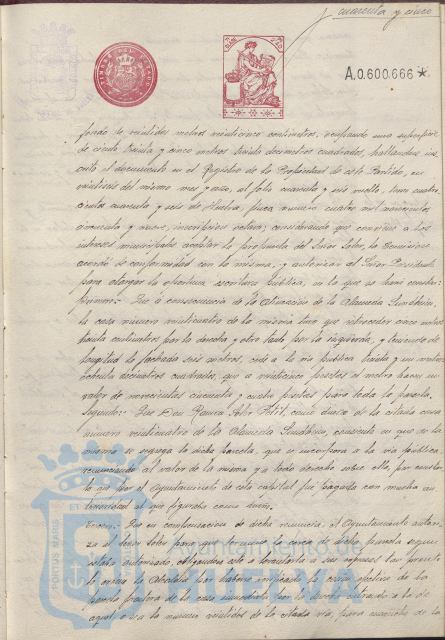 cuarenta y cinco
A.0.600.666*
fondo de veintidos metros veinticinco centímetros, ocupando una superficie
de ciento treinta y cinco metros treinta decímetros cuadrados, hallándose ins-
crito el documento en el Registro de la Propiedad de este Partido, en
veintiseis del mismo mes y año, al folio cuarenta y seis vuelto, tomo cuatro-
cientos cuarenta y seis de Huelva, finca número cuatro mil novecientos
cincuenta y nueve, inscripción octava; considerando que conviene a los
intereses municipales aceptar la propuesta del Señor Soler, la Comisión
acordó su conformidad con la misma, y autorizar al Señor Presidente
para otorgar la oportuna escritura pública, en la que se hará constar:
Primero: Que a consecuencia de la alineación de la Alameda Sundheim
la casa número veinticuatro de la misma tuvo que retroceder cinco metros
treinta centímetros por la derecha y otro tanto por la izquierda, y teniendo de
longitud de fachada seis metros, cede a la vía pública treinta y un metros
ochenta decímetros cuadrados, que a veinticinco pesetas el metro hacen un
valor de novecientas cincuenta y cuatro pesetas para toda la parcela.
Segundo: Que Don Ramón Soler Petit, como dueño de la citada casa
número veinticuatro de la Alameda Sundheim, consiente en que de la
misma se segregue la dicha parcela, que se incorpora a la vía pública,
renunciando al valor de la misma y a todo derecho sobre ella, por cuanto
la que por el Ayuntamiento de esta capital fué pagada con mucha an-
terioridad al que figuraba como dueño.
Tercero: Que en compensación de dicha renuncia, el Ayuntamiento autori-
za al Señor Soler para que
estaba autorizado, obligándose este a levantarla a sus expensas tan pronto
lo ordene la Alcaldía por haberse verificado la
parcela
aquel, o sea la número veintidos de la citada vía, para
Ayuntamiento de
PORTUS MARIS ET